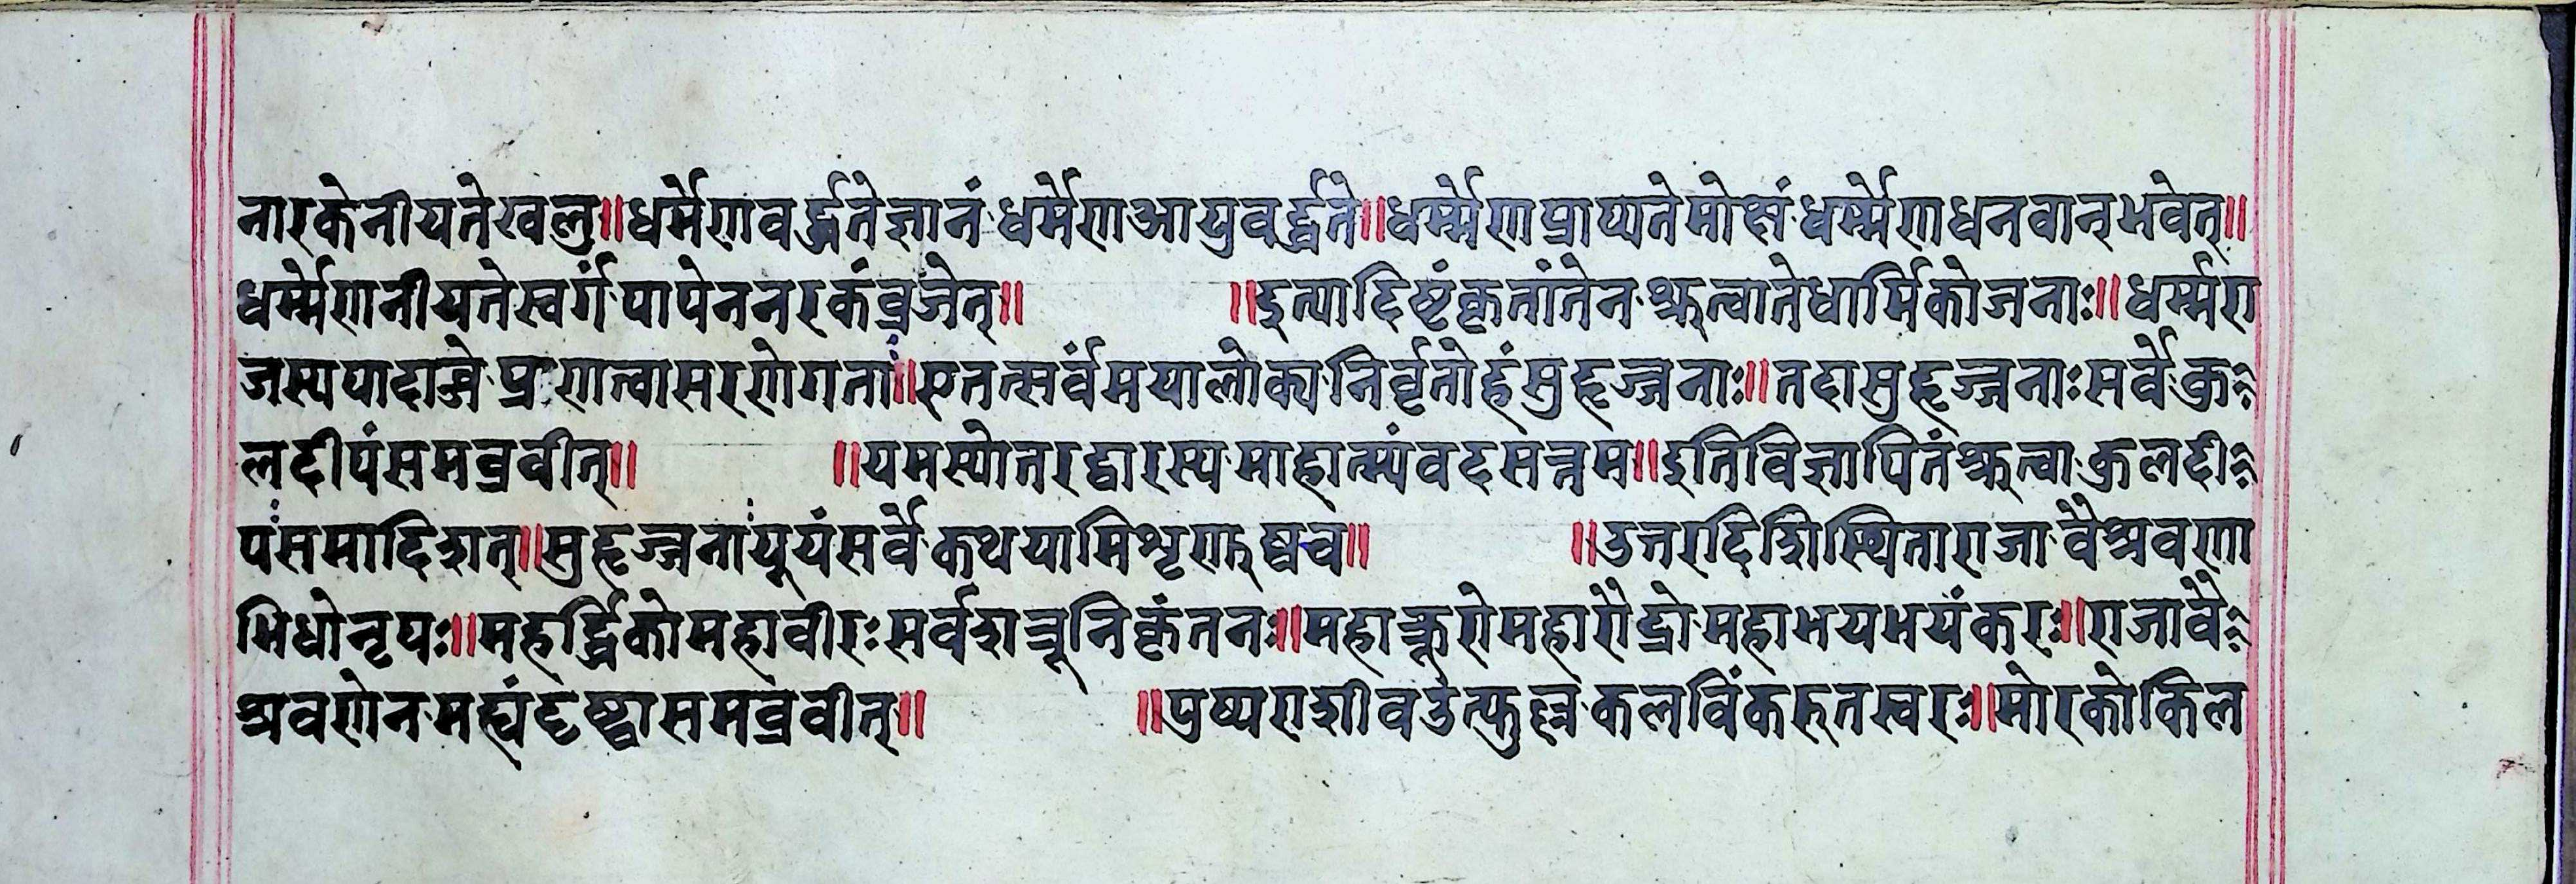 नारकेनीयतेखलु॥धर्मेणवर्द्धतेज्ञानं धर्मेणआयुवर्द्धते॥धर्म्मेणप्राप्यतेमोक्षं धर्म्मेणधनवान्भवेत्॥
धर्म्मेणनीयतेस्वर्गं पापेननरकंव्रजेत्॥ ॥इत्यादिष्टंकृतांतेन श्रुत्वातेधार्मिकोजनाः॥धर्म्मरा
जस्यपादाब्जे प्रणत्वासरणेगतां॥एतत्सर्वंमयालोक्य निर्वृतोहंसुहृज्जनाः॥तदासुहृज्जनाःसर्वे कु
लदीपंसमब्रवीत्॥ ॥यमस्योतरद्वारस्य माहात्म्यंवदसत्तम॥इतिविज्ञापितंश्रुत्वा कुलदी
पंसमादिशत्॥सुहृज्जनांयूयंसर्वे कथयामिशृणुष्वच॥ ॥उत्तरदिशिस्थितोराजा वैश्रवणा
भिधोनृपः॥महर्द्धिकोमहावीरः सर्वशत्रूनिकृंतनः॥महाक्रूरोमहारौद्रो महाभयभयंकरः॥राजावै
श्रवणेन मह्यंदृष्ट्वासमब्रवीत्॥ ॥पुष्पराशीवउत्फुल्ल कलविंकरुतस्वरः॥मोरकोकिल